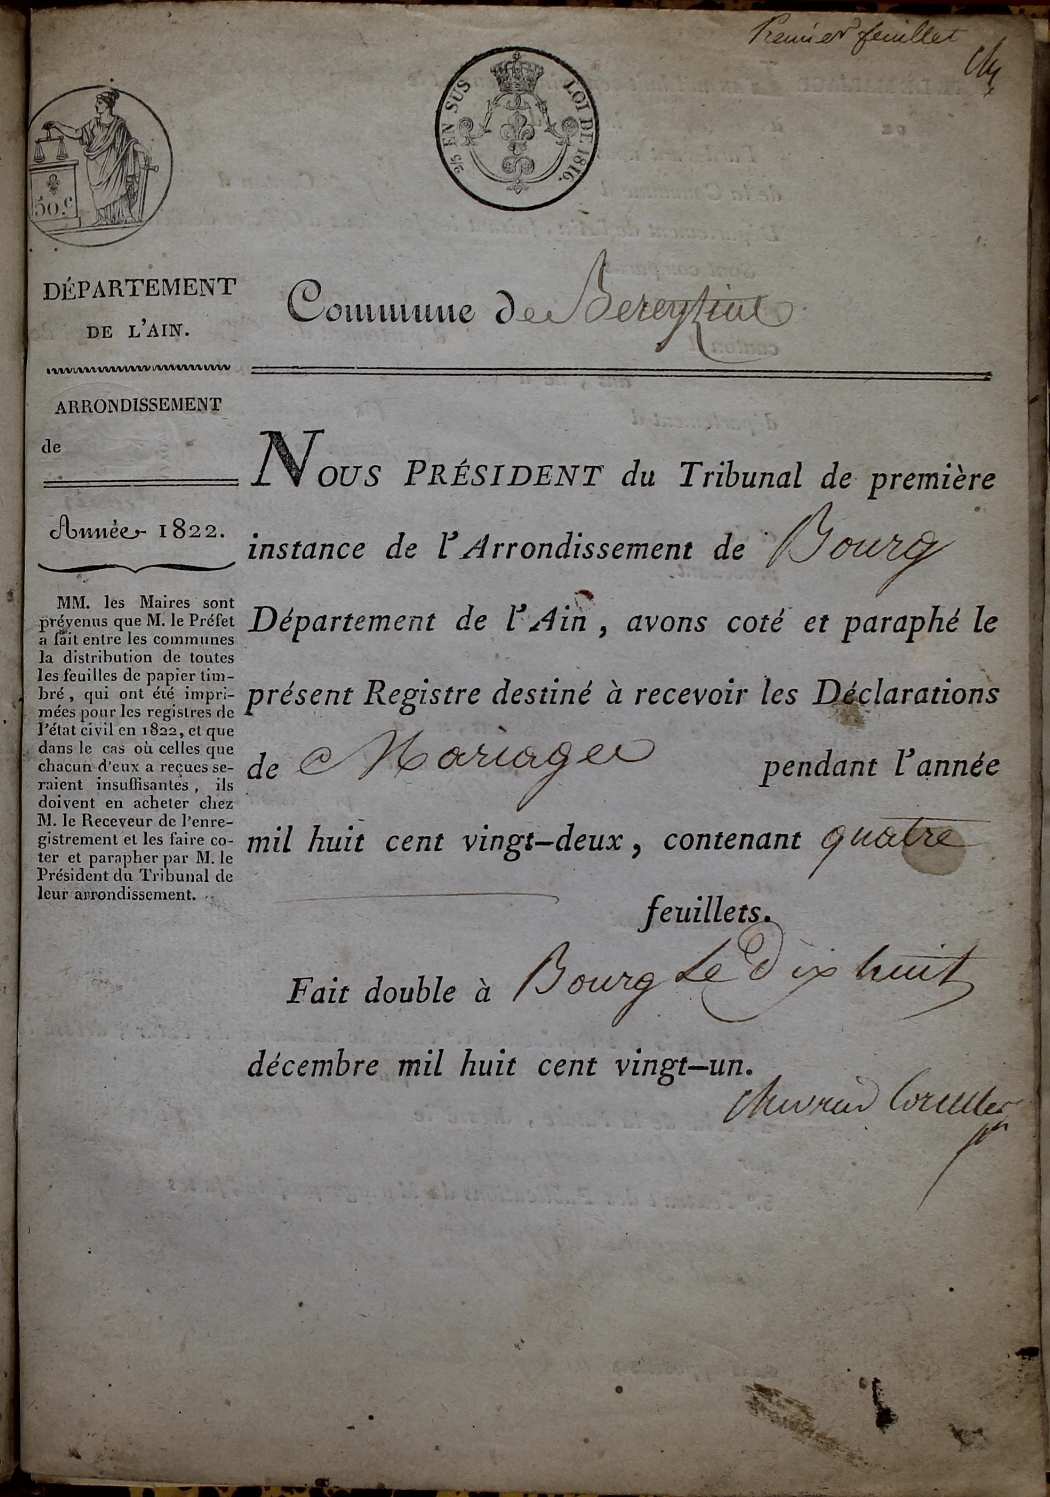 Premier feuillet
2/5 EN SUS
LOI DE 1816.
50.c
DÉPARTEMENT
DE L'AIN.
Commune de Bereyziat
ARRONDISSEMENT
de
Année 1822.
MM. les Maires sont
prévenus que M. le Préfet
a fait entre les communes
la distribution de toutes
les feuilles de papier tim-
bré, qui ont été impri-
mées pour les registres de
l'état civil en 1822, et que
dans le cas où celles que
chacun d'eux a reçues se-
raient insuffisantes, ils
doivent en acheter chez
M. le Receveur de l'enre-
gistrement et les faire co-
ter et parapher par M. le
Président du Tribunal de
leur arrondissement.
NOUS PRÉSIDENT du Tribunal de première
instance de l'Arrondissement de Bourg
Département de l'Ain, avons coté et paraphé le
présent Registre destiné à recevoir les Déclarations
de Mariages pendant l'année
mil huit cent vingt-deux, contenant quatre
feuillets.
Fait double à Bourg Le dix huit
décembre mil huit cent vingt-un.